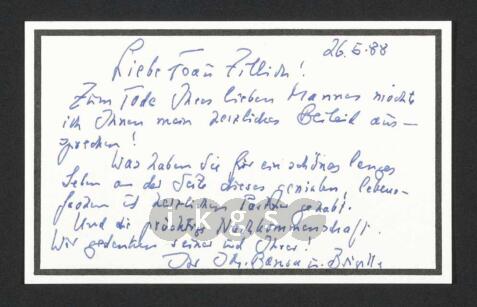 26.5.88
Liebe Frau Zillich!
Zum Tode Ihres lieben Mannes möchte
ich Ihnen mein herzliches Beileid aus-
sprechen!
Was haben Sie für ein schönes langes
Leben an der Seite dieses genialen, lebens-
frohen u. herzlichen Partners gehabt.
Und die prächtige Nachkommenschaft.
Wir gedenken seiner und Ihrer!
Ihr u. Brigitte
ikgs